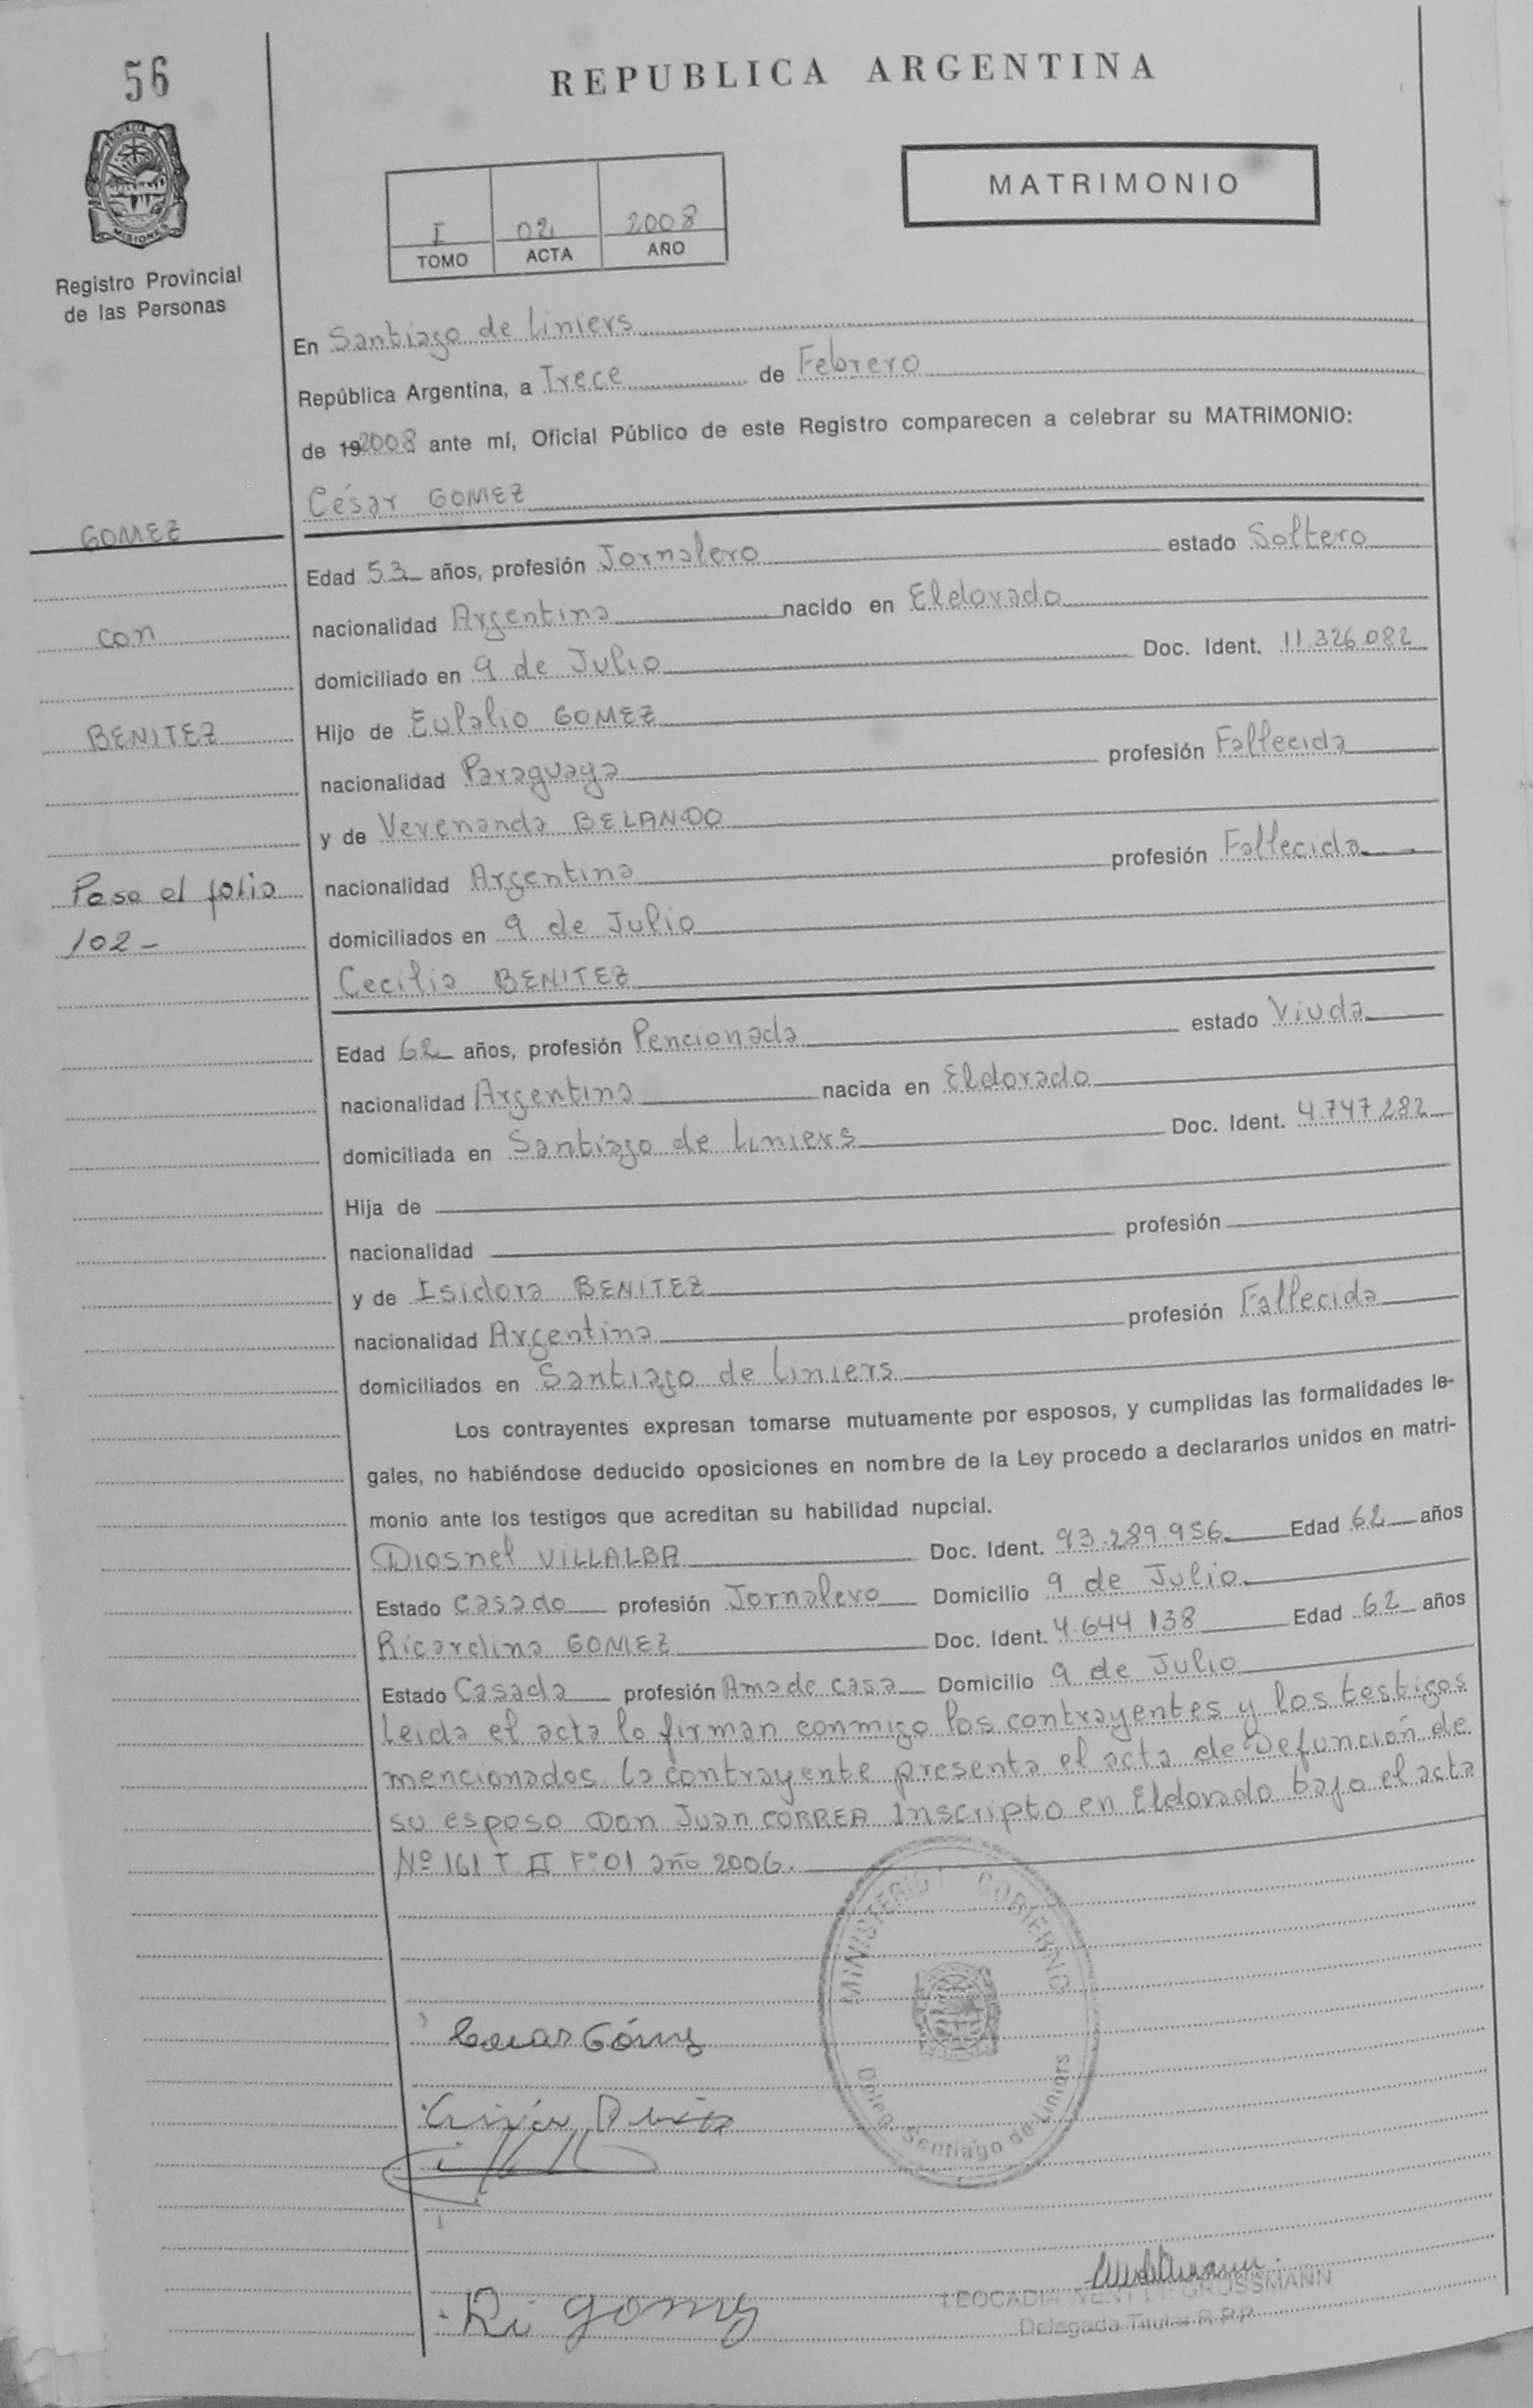 56
REPUBLICA ARGENTINA
PROVINCIA DE
MISIONES
Registro Provincial
de las Personas
I 02 2008
TOMO ACTA AÑO
MATRIMONIO
En Santiago de Liniers
República Argentina, a Trece de Febrero
de 192008 ante mí, Oficial Público de este Registro comparecen a celebrar su MATRIMONIO:
César GOMEZ
GOMEZ
con
BENITEZ
Pase el folio
102-
Edad 53 años, profesión Jornalero estado Soltero
nacionalidad Argentina nacido en Eldorado
domiciliado en 9 de Julio Doc. Ident. 11.326.082
Hijo de Eulalio GOMEZ
nacionalidad Paraguaya profesión Fallecida
y de Verenanda BELANDO
nacionalidad Argentina profesión Fallecida
domiciliados en 9 de Julio
Cecilia BENITEZ
Edad 62 años, profesión Pencionada estado Viuda
nacionalidad Argentina nacida en Eldorado
domiciliada en Santiago de Liniers Doc. Ident. 4.747.282
Hija de
nacionalidad profesión
y de Isidora BENITEZ
nacionalidad Argentina profesión Fallecida
domiciliados en Santiago de Liniers
Los contrayentes expresan tomarse mutuamente por esposos, y cumplidas las formalidades le-
gales, no habiéndose deducido oposiciones en nombre de la Ley procedo a declararlos unidos en matri-
monio ante los testigos que acreditan su habilidad nupcial.
Diosnel VILLALBA Doc. Ident. 93.289.956 Edad 62 años
Estado Casado profesión Jornalero Domicilio 9 de Julio
Ricardina GOMEZ Doc. Ident. 4.644.138 Edad 62 años
Estado Casada profesión Ama de casa Domicilio 9 de Julio
Leida el acta lo firman conmigo los contrayentes y los testigos
mencionados. La contrayente presenta el acta de Defunción de
su esposo Don Juan CORREA Inscripto en Eldorado bajo el acta
Nº 161 T II Fº 01 año 2006.
MINISTERIO GOBIERNO
Deleg. Santiago de Liniers
Cesar Gómez
Ri gomez
LEOCADIA WENT DE GROSSMANN
Delegada Titular R.P.P.